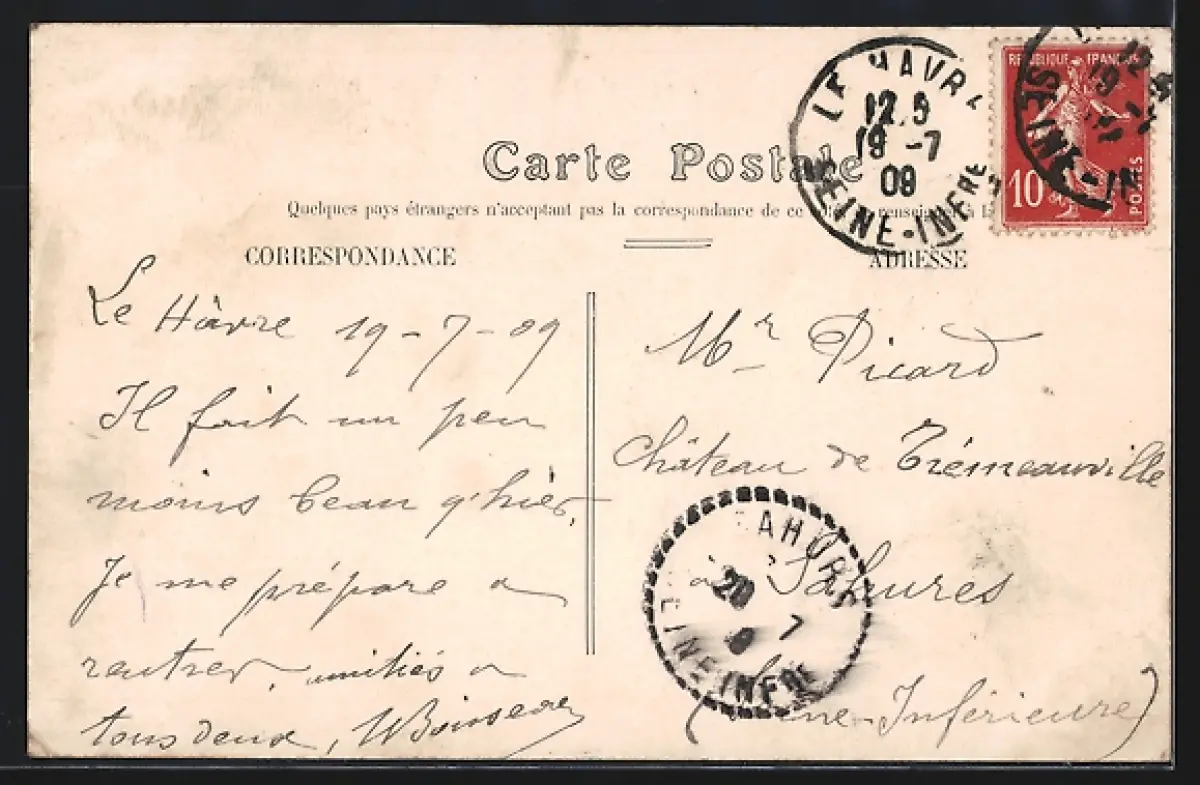 Carte Postale
Quelques pays étrangers n'acceptant pas la correspondance de ce renseigner à la
CORRESPONDANCE
ADRESSE
LE HAVRE
19 -7
09
SEINE-INFRE
REPUBLIQUE FRANÇAISE
10
POSTES
SEINE-IN
Le Hâvre 19-7-09
Il fait un peu
moins beau q'hier.
Je me prépare a
rentrer. amitiés a
tous deux,
Mr Picard
Château de Trémeauville
a Sahures
(Seine-Inférieure)
SAHURS
20
7
SEINE INFRE